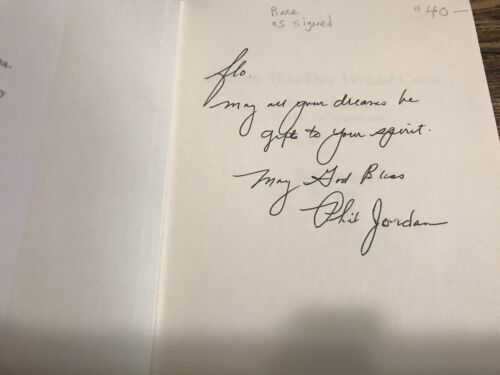 as signed
40 —
Flo.
May all your dreams be
gifts to your spirit.
May God Bless
Phil Jordan